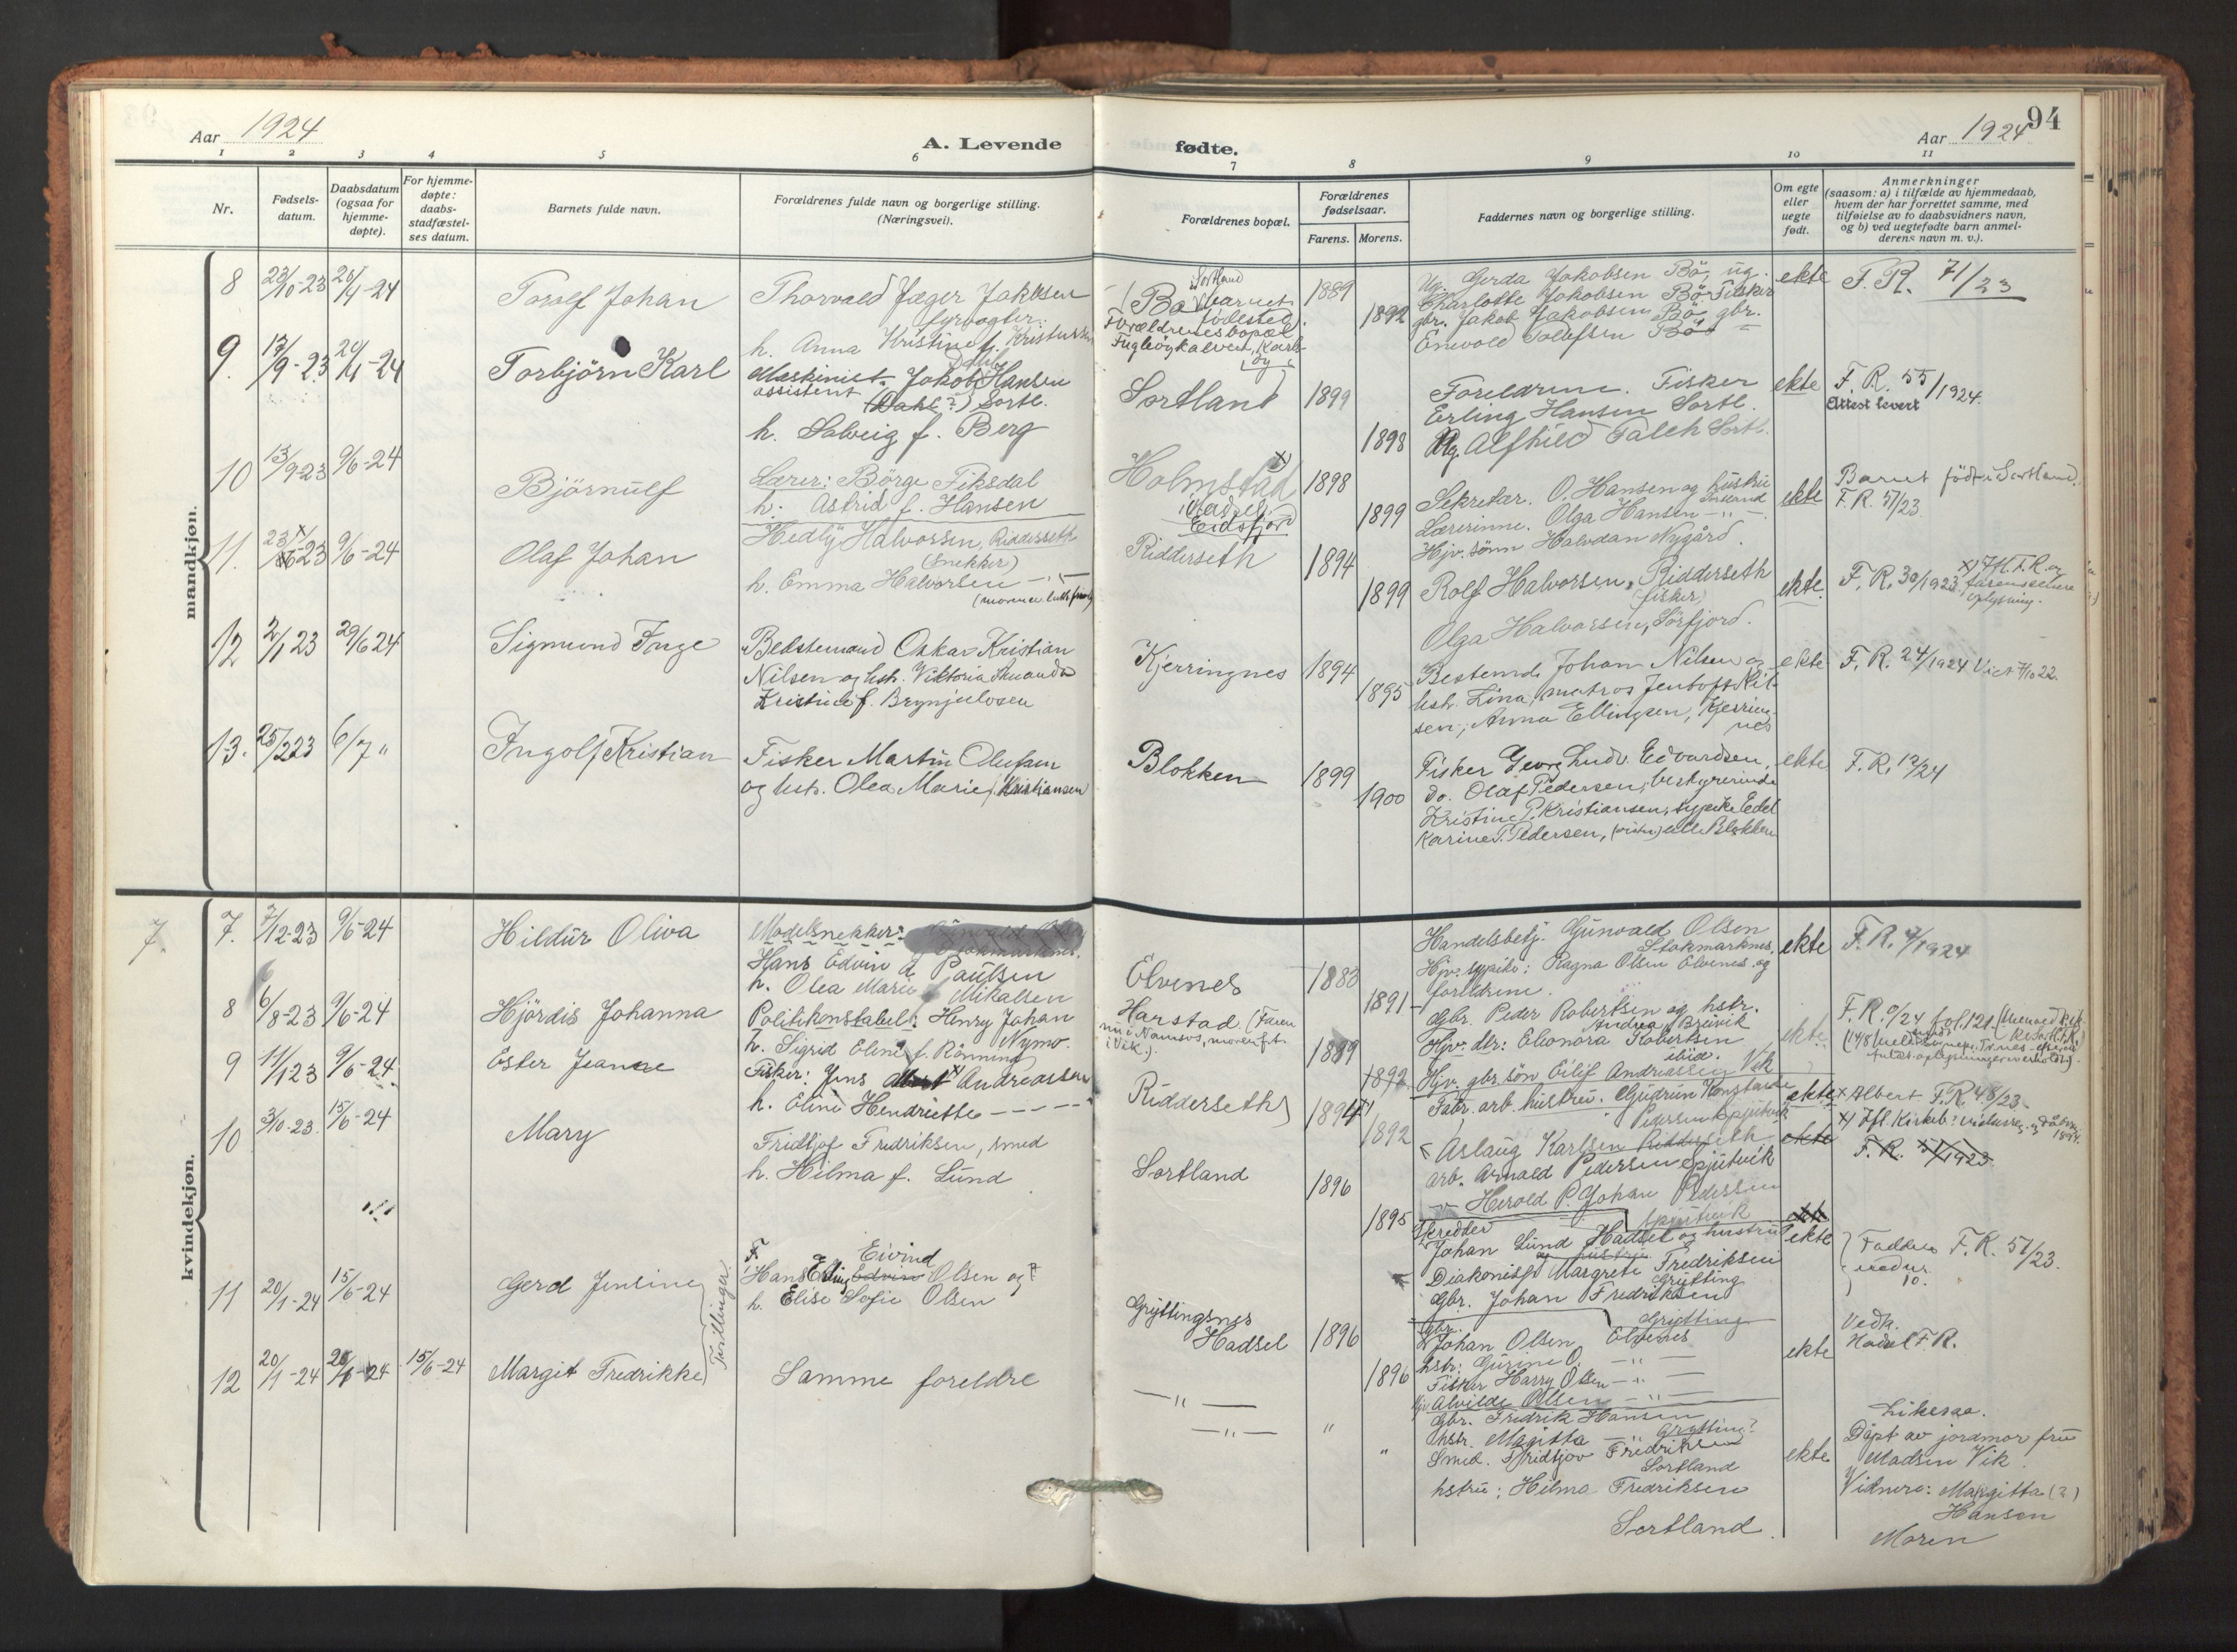 Aar 1924
A. Levende
fødte.
Aar 1924
94
1 2 3 4 5 6 7 8 9 10 11
Nr.
Fødsels-
datum.
Daabsdatum
(ogsaa for
hjemme-
døpte).
For hjemme-
døpte:
daabs-
stadfæstel-
ses datum.
Barnets fulde navn.
Forældrenes fulde navn og borgerlige stilling.
(Næringsvei).
Forældrenes bopæl.
Forældrenes
fødselsaar.
Farens. Morens.
Faddernes navn og borgerlige stilling.
Om egte
eller
uegte
født.
Anmerkninger
(saasom: a) i tilfælde av hjemmedaab,
hvem der har forrettet samme, med
tilføielse av to daabsvidners navn,
og b) ved uegtefødte barn anmel-
derens navn m. v.).
mandkjøn.
8 23/10-23 20/4-24
Torolf Johan
Thorvald Jæger Jakobsen
fyrvogter.
h. Anna Kristine f. Kristensen
Sortland
Bø (barnets
fødested.
Forældrenes bopæl
Fugløykalven, Karls-
øy
1889
1892
Ug. Gerda Jakobsen Bø, ug.
Charlotte Jakobsen Bø. Fisker
gbr. Jakob Jakobsen Bø gbr.
Enevold Tolefsen Bø
ekte
F. R. 71/23
9. 13/9-23 20/4-24
Torbjörn Karl
Maskinist- Jakob Hansen
assistent (Dahl?) Sortl.
h. Solveig f. Berg
Sortland
1899
1898
Foreldrene. Fisker
Erling Hansen Sortl.
Ug. Alfhild Falch Sortl.
ekte
F. R. 55/1924.
Attest levert
10 13/9-23 9/6-24
Björnulf
Lærer: Börge Fiksdal
h. Astrid f. Hansen
Holmstad x)
i Hadsel.
Eidsfjord
1898
1899
Sekretær. O. Hansen og hustru
Lærerinne. Olga Hansen -"-
Hjv. sønn Halvdan Nygård.
ekte
Barnet född i Sortland.
F. R. 57/23
11. 23/6-23 9/6-24
Olaf Johan
Hedly Halvorsen, Ridderseth
(Snekker)
h. Emma Halvorsen -"-
Ridderseth
1894
1899
Rolf Halvorsen, Ridderseth
(fisker)
Olga Halvorsen, Sörfjord.
ekte.
F. R. 30/1923
x) Ifl. F.R. og
farens senere
oplysning.
12 2/1 23 29/6 24
Sigmund Inge
Bedstemand Oskar Kristian
Nilsen og hst. Viktoria Amanda
Kristine f. Brynjulvsen
Kjerringnes
1894
1895
Bestemd. Johan Nilsen og
hst. Lina, matros Jentoft Nil-
sen, Anna Ellingsen, Kjerring-
nes
ekte
F. R. 24/1924 Viet 7/10 22.
13. 25/2 23 6/7 "
Ingolf Kristian
Fisker Martin Olufsen
og hst. Olea Marie f. Kristiansen
Blokken
1899
1900
Fisker Georg Ludv. Edvardsen,
do. Olaf Pedersen, bestyrerinde
Kristine P. Kristiansen, ugpike Edel
Karine P. Pedersen, alle Blokken
ekte
F. R. 12/24
kvindekjøn.
7.
7. 7/12-23 9/6-24
Hildur Oliva
Modelsnekker:
Hans Edvin A. Paulsen
h. Olea Marie f. Mikalsen
Elvenes
1883
1891
Handelsbetj. Gunvald Olsen
Stokmarknes.
Hjv. ugpike: Ragna Olsen Elvenes. og
foreldrene.
ekte
F. R. 7/1924
8 6/8-23 9/6-24
Hjördis Johanna
Politikonstabel: Henry Johan
Nymo.
h. Sigrid Eline f. Rönning
Harstad. (Faren
nu i Namsos, moren f.t.
i Vik.).
1889
1892
Gbr. Peder Robertsen og hstr.
Andrea, Breivik
Hjv. dtr. Eleonora Robertsen
ibid.
Hjv. gbr. sön Eilif Andreassen Vik
ekte
F. R. 9/24 fol. 121.
9 11/1 23 9/6-24
Ester Jeanne
Fisker: Jens x) Andreassen
h. Eline Hendriette - - - -
Ridderseth
1894 x)
1892
Fabr. arb. hustru. Gudrun Konstanse
Pedersen Spjutvik
Aslaug Karlsen Ridderseth
arb. Arnold Pedersen Spjutvik
-"- Herold P. Johan Pedersen
Spjutvik
ekte
x Albert F. R. 48/23
10 3/10-23 15/6-24
Mary
Fridtjof Fredriksen, smed
h. Hilma f. Lund
Sortland
1896
1895
Skredder
Johan Lund Hadsel og hustru
Diakonisse Margrete Fredriksen
Grytting
Gbr. Johan Fredriksen
Grytting
ekte
ekte
F. R. 51/1923
Faddere
nedur.
10.
F. R. 51/23.
Trillinger
11 20/1-24 15/6-24
Gerd Jensine
F.
Eivind
Hans Erling Edvin Olsen og
h. Elise Sofie Olsen
Gryttingsnes
Hadsel
1896
1896
Gbr.
Johan Olsen Elvenes
hstr: Gurine O. -"-
Fisker Harry Olsen -"-
Alvilde Olsen -"-
ekte
Vedk.
Hadsel F. R.
12 20/1-24 20/1-24 15/6-24
Margit Fredrikke
Samme foreldre
-"-
-"-
" "
Gbr. Fredrik Hansen
hstr. Magitta -"- Grytting?
Smed. Fridtjov Fredriksen
Sortland
hstru: Hilma Fredriksen
Sortland.
ekte
Likesaa.
Döpt av jordmor fru
Madsen Vik.
Vidnere: Margitta (?)
Hansen
Moren